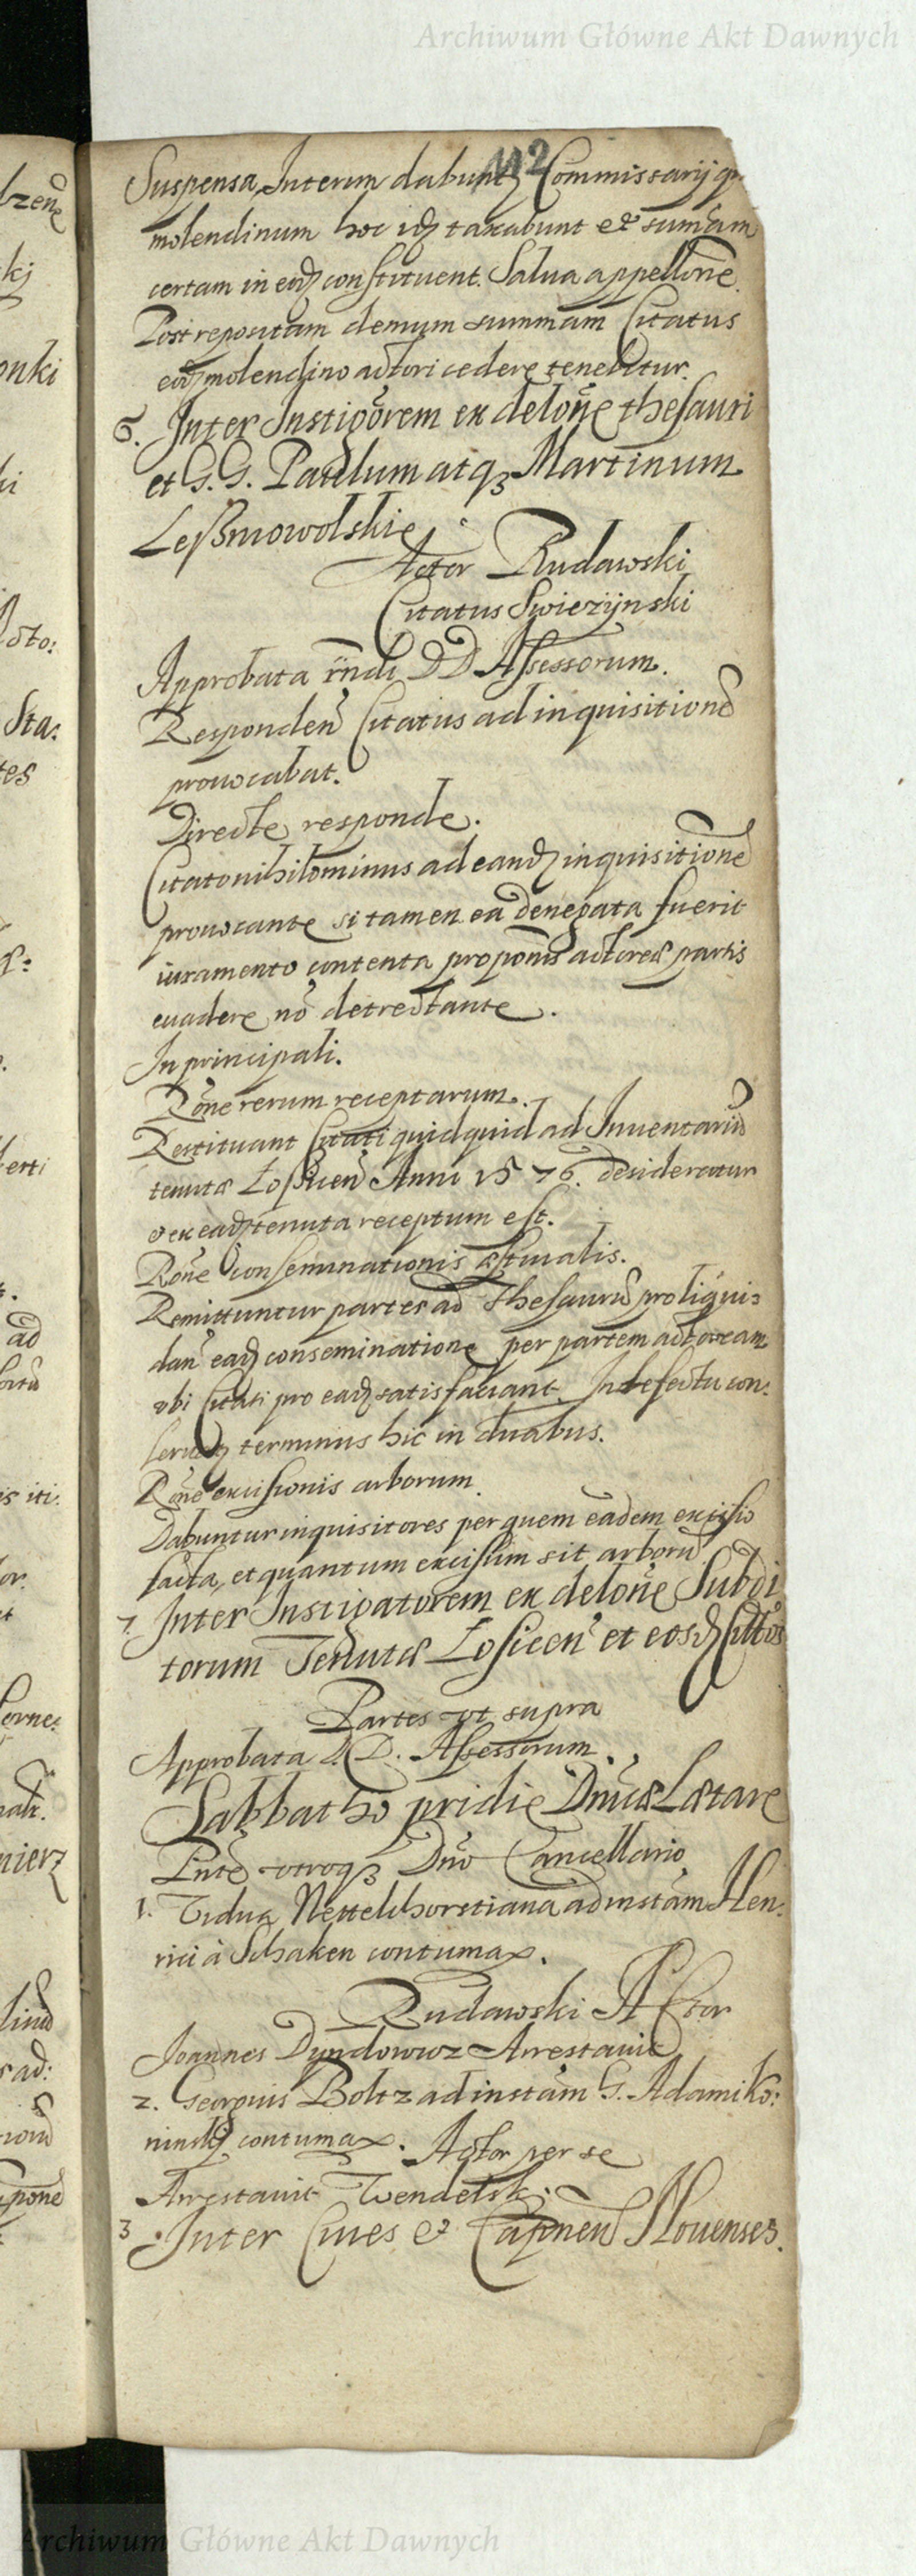 Archiwum Główne Akt Dawnych
112
Suspensa, Interim dabuntꝫ Commissarij qui
molendinum hoc idꝫ taxabunt et summam
certam in eodꝫ constituent. Salua appellōne.
Post repositam demum summam Citatus
eodꝫ molendino actori cedere tenebitur.
6. Inter Instigōrem ex delōne thesauri
et G. G. Paulum atqꝫ Martinum
Leßniowolskie
Actor Rudawski
Citatus Swieżijnski
Approbata DD Assessorum.
Responden̄ Citatus ad inquisitionē
prouocabat.
Directe responde.
Citato nihilominus ad eandꝫ inquisitionē
prouocante si tamen ea denegata fuerit
iuramento contenta propōnis actoreæ partis
euadere nō detrectante.
In principali.
Rōne rerum receptarum.
Restituant Citati quidquid ad Inuentariū
tenutæ Łosicen̄ Anni 1576. desideratur
et ex eadꝫ tenuta receptum est.
Rōne conseminationis æstiualis.
Remittuntur partes ad thesaurū pro liqui:
dan̄ eadꝫ conseminatione per partem actoream
vbi Citati pro eadꝫ satisfaciant. In defectu con:
seruatꝫ terminus hic in duabus.
Rōne excisionis arborum.
Dabuntur inquisitores per quem eadem excisio
facta, et quantum excisum sit arborū.
7. Inter Instigatorem ex delōne Subdi
torum Tenutæ Łosicen̄ et eosdꝫ Cittōs
Partes vt supra
Approbata D. D. Assessorum.
Sabbatho pridie Dnicæ Lætare
Pnte vtroqꝫ Dno Cancellario
1. Vidua Nettelhorstiana ad instām Hen:
rici à Schaken contumax.
Rudawski Actor
Joannes Dyndowicz Arrestauit
2. Georgius Boltz ad instām G. Adami Ko:
ninskij contumax. Actor per se
Arrestauit Wendelsk.
3. Inter Ciues et Capnen̄ Nouenses.
Archiwum Główne Akt Dawnych